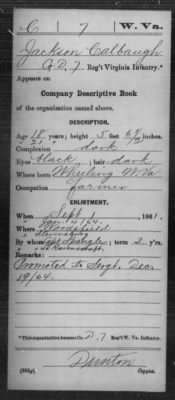 C 7 W. Va.
Jackson Calbaugh
Co. D, 7 Reg't Virginia Infantry.*
Appears on
Company Descriptive Book
of the organization named above.
DESCRIPTION.
Age 18 years; height 5 feet inches.
Complexion dark
Eyes black; hair dark
Where born Wheeling W Va
Occupation Farmer
ENLISTMENT.
When Sept 1, 1861.
Where Woodsfield
By whom term 2 y'rs.
Remarks:
Promoted to Sergt. Dec.
19/64.
*This organization became Co. D, 7 Reg't W. Va. Infantry.
Dunton
Copyist.